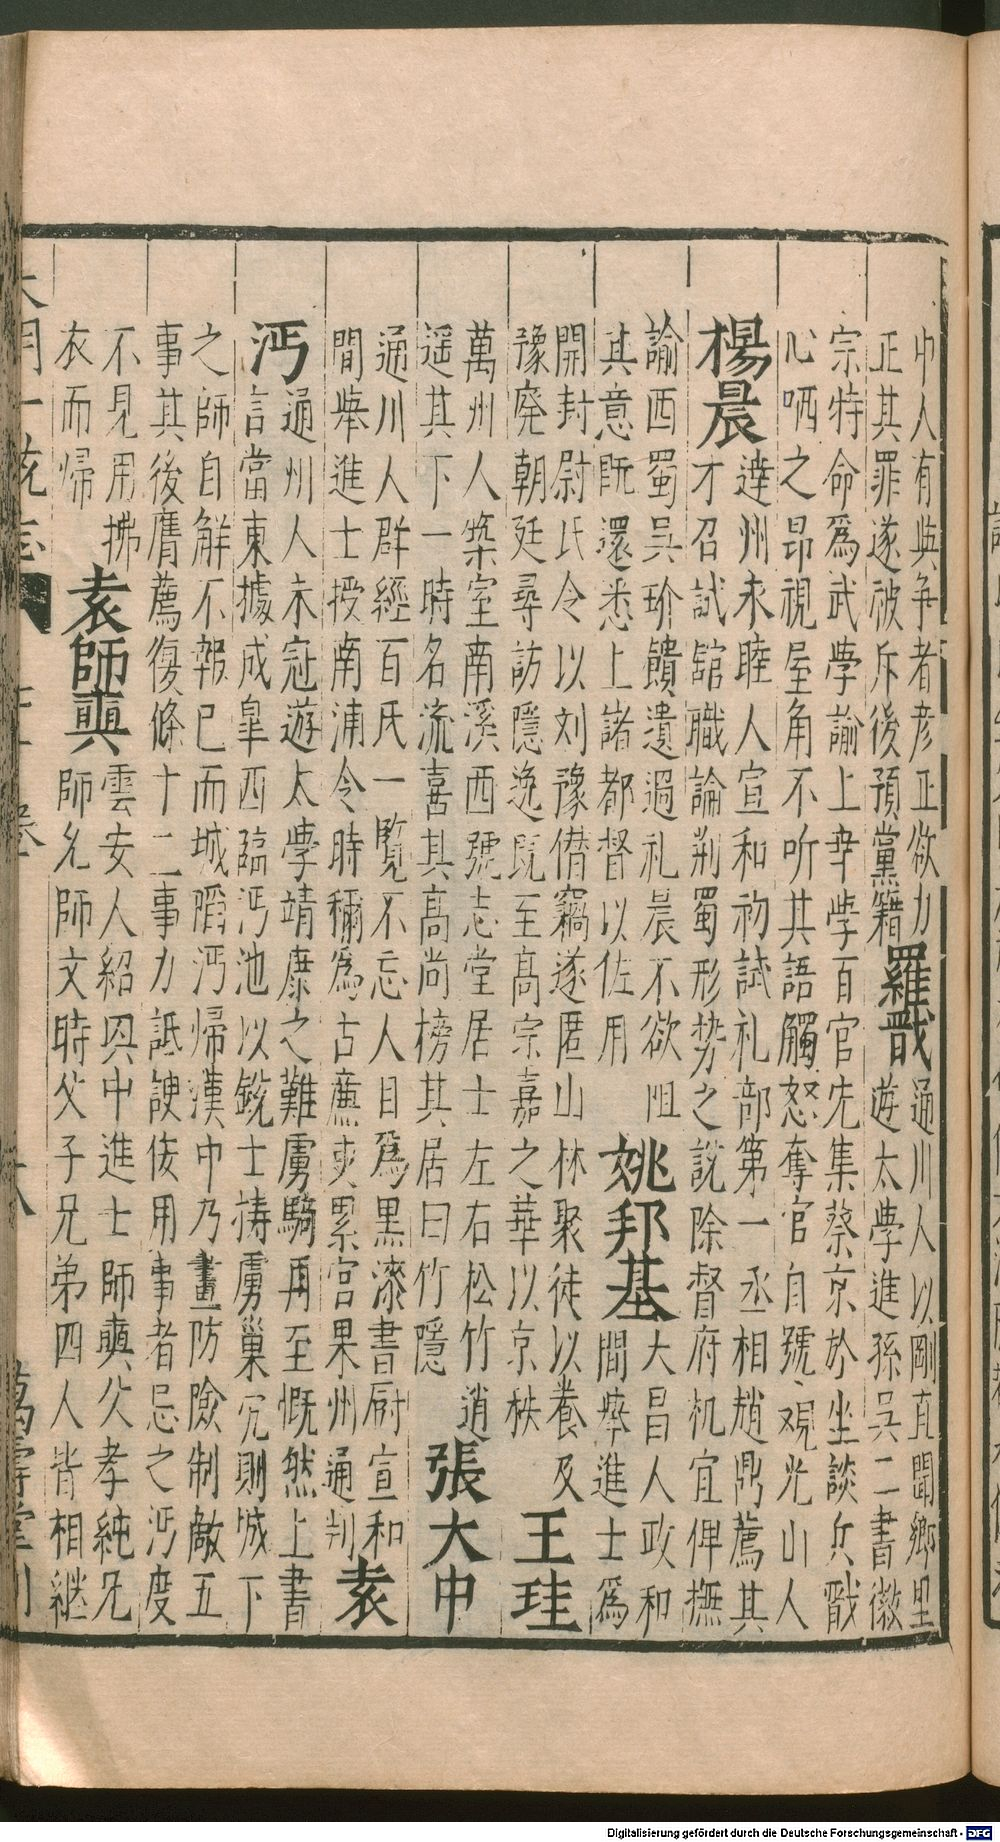 中人有與争者彦正欲力
正其罪遂被斥後預黨籍
羅戬
通川人以剛直聞鄉里
遊太學進孫吳二書徽
宗特命爲武學諭上幸學百官先集蔡京於坐談兵戬
心哂之昂視屋角不听其語觸怒奪官自號观光山人
楊晨
達州未睦人宣和初試礼部第一丞相趙鼎薦其
才召試舘職論荆蜀形势之說除督府机宜俾撫
諭西蜀吴玠饋遺過礼晨不欲阻
其意既還悉上諸都督以佐用
姚邦基
大昌人政和
間举進士爲
開封尉氏令以刘豫僭竊遂匿山林聚徒以養及
豫廃朝廷尋訪隱逸既至高宗嘉之華以京秩
王珪
萬州人築室南溪西號志堂居士左右松竹逍
遥其下一時名流喜其高尚榜其居曰竹隱
張大中
通川人群經百氏一覧不忘人目爲黒漆書厨宣和
間举進士授南浦令時穪爲古廉吏累官果州通判
袁
沔
通州人未冦遊太學靖康之難虜騎再至慨然上書
言當東據成皐西臨沔池以銳士擣虜巢穴則城下
之師自解不報已而城䧟沔歸漢中乃畫防險制敵五
事其後膺薦復條十二事力詆諛佞用事者忌之沔度
不見用拂
衣而歸
袁師奭
雲安人紹兴中進士師奭父孝純兄
師允師文時父子兄弟四人皆相継
大明一統志
萬壽堂刊
Digitalisierung gefördert durch die Deutsche Forschungsgemeinschaft - DFG